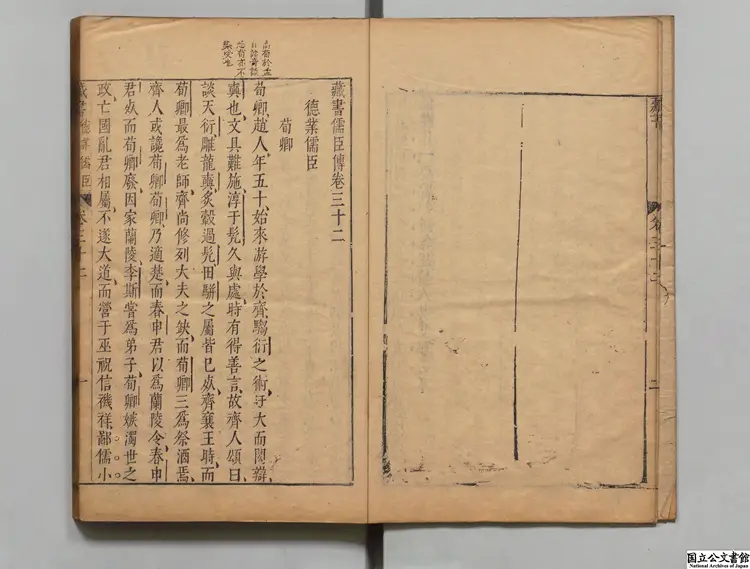 藏書
卷三十二
二
藏書儒臣傳卷三十二
德業儒臣
荀卿
荀卿趙人年五十始來游學於齊騶衍之術迂大而閎辯
奭也文具難施淳于髡久與處時有得善言故齊人頌曰
談天衍雕龍奭炙轂過髡田駢之屬皆巳死齊襄王時而
荀卿最爲老師齊尚修列大夫之缺而荀卿三爲祭酒焉
齊人或讒荀卿荀卿乃適楚而春申君以爲蘭陵令春申
君死而荀卿廢因家蘭陵李斯嘗爲弟子荀卿嫉濁世之
政亡國亂君相屬不遂大道而營于巫祝信禨祥鄙儒小
藏書德業儒臣
卷三十二
一
国立公文書館
National Archives of Japan